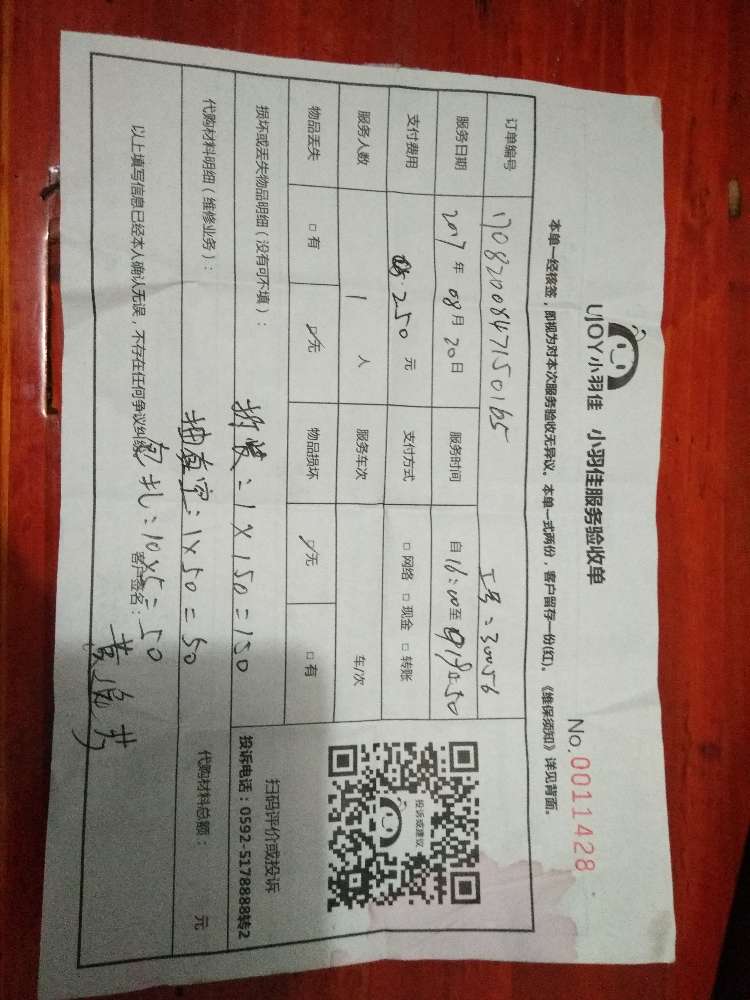 UJOY小羽佳 小羽佳服务验收单
No.00111428
本单一经核签，即视为对本次服务验收无异议。本单一式两份，客户留存一份(红)。《维保须知》详见背面。
订单编号 1708200847150165 工号：30056
服务日期 2017年08月20日 服务时间 自16:00至
支付费用 250元 支付方式 □网络 □现金 □转账
服务人数 1人 服务车次 车/次
物品丢失 □有 ☑无 物品损坏 ☑无 □有
投诉或建议
扫码评价或投诉
投诉电话：0592-5178888转2
损坏或丢失物品明细（没有可不填）：
拆装：1×150=150
代购材料明细（维修业务）：
抽真空：1×50=50
代购材料总额： 元
包扎：10×5=50
以上填写信息已经本人确认无误，不存在任何争议纠纷。 客户签名：